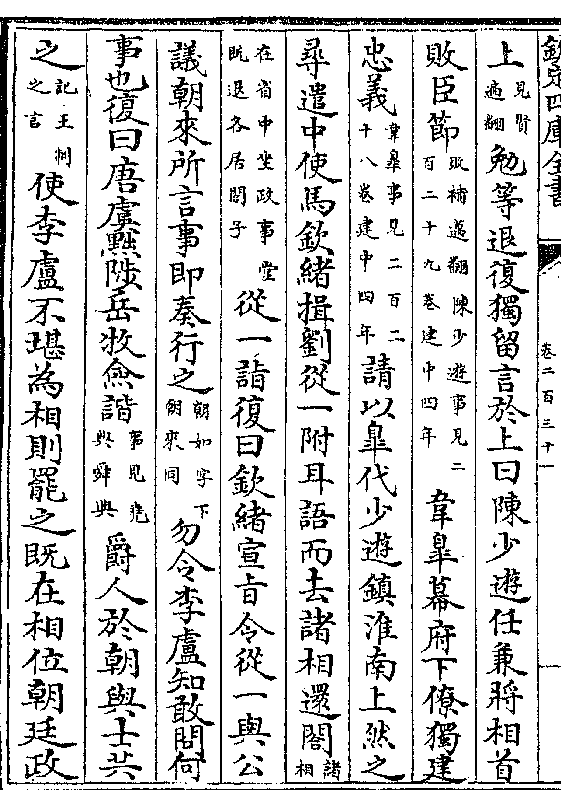 欽定四庫全書
卷二百三十一
上見賢遍翻勉等退復獨留言於上曰陳少遊任兼將相首
敗臣節敗補邁翻陳少遊事見二百二十九卷建中四年韋臯幕府下僚獨建
忠義韋臯事見二百二十八卷建中四年請以臯代少遊鎮淮南上然之
尋遣中使馬欽緒揖劉從一附耳語而去諸相還閤諸相
在省中坐政事堂既退各居閤子從一詣復曰欽緒宣旨令從一與公
議朝來所言事即奏行之朝如字下朝來同勿令李盧知敢問何
事也復曰唐虞黜陟岳牧僉諧事見堯典舜典爵人於朝與士共
之記王制之言使李盧不堪為相則罷之既在相位朝廷政